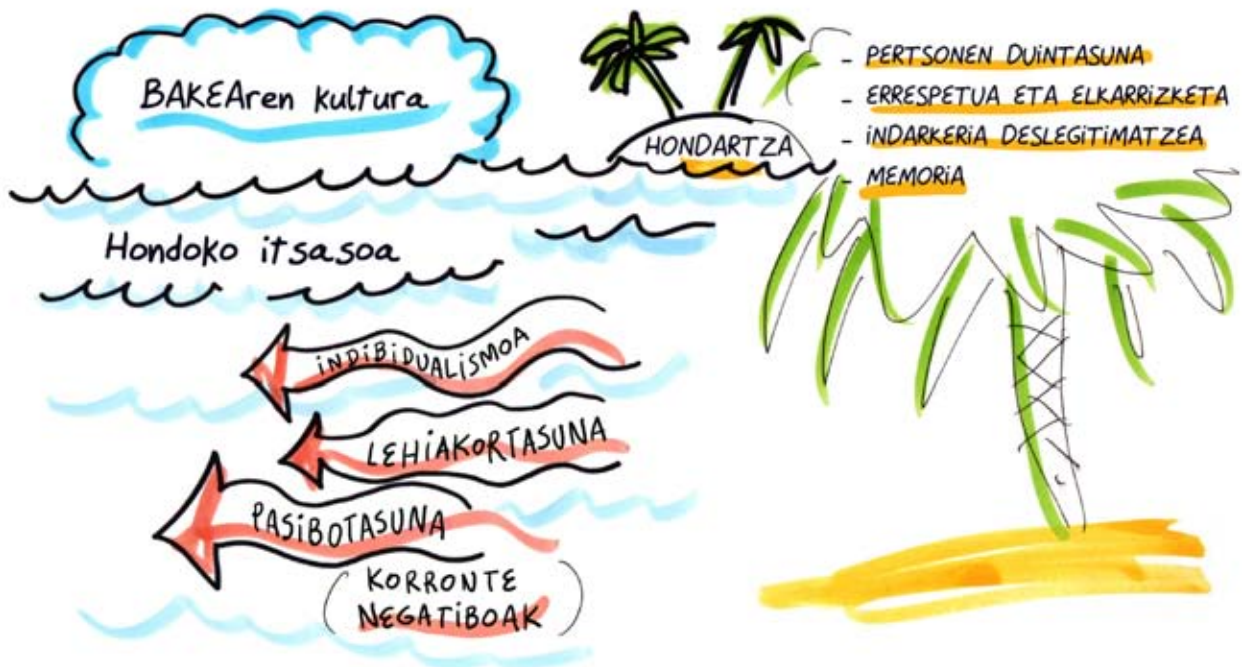 BAKEAren kultura
HONDARTZA
- PERTSONEN DUINTASUNA
- ERRESPETUA ETA ELKARRIZKETA
- INDARKERIA DESLEGITIMATZEA
- MEMORIA
Hondoko itsasoa
INDIBIDUALISMOA
LEHIAKORTASUNA
PASIBOTASUNA
(KORRONTE
NEGATIBOAK)